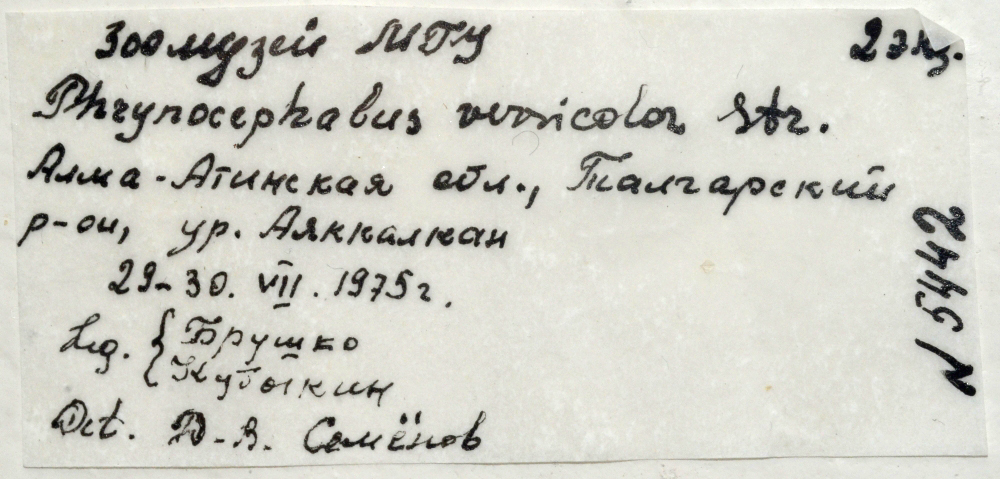 Зоомузей МГУ 2 экз.
Phrynocephalus versicolor Str.
Алма-Атинская обл., Талгарский
р-он, ур. Аяккалкан
29-30. VII. 1975 г.
Leg. { Брушко
Кубыкин
Det. Д.В. Семёнов
N 5442